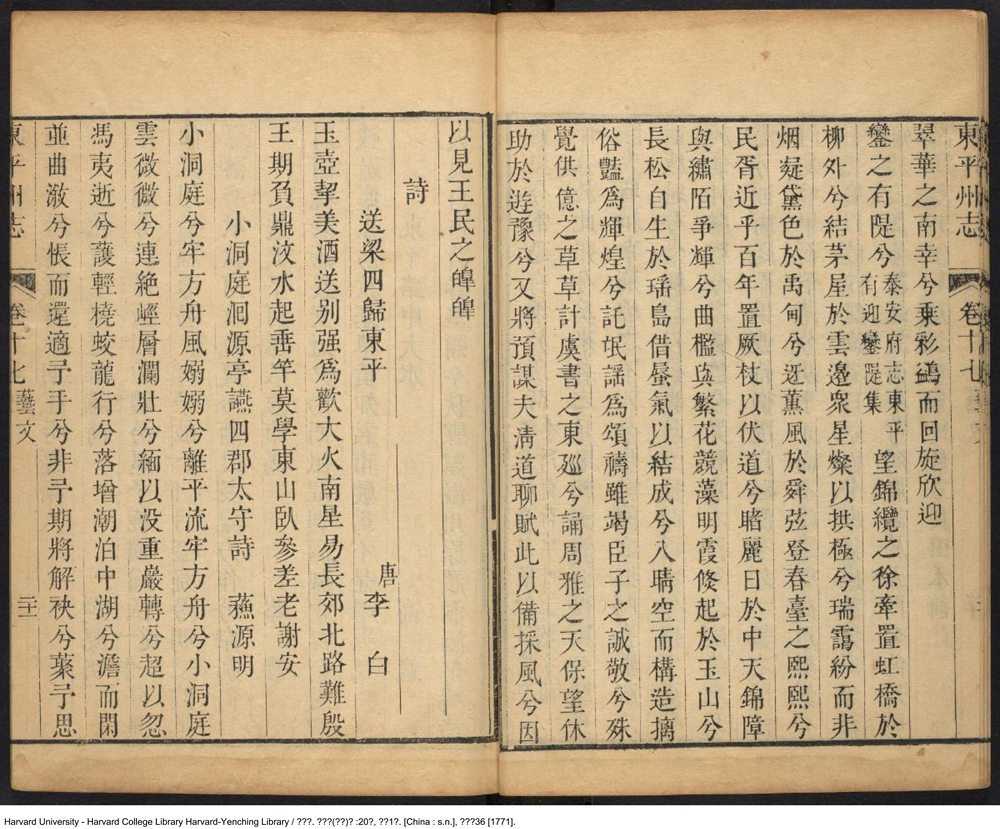 東平州志 卷十七 藝文
翠華之南幸兮乘彩鷁而回旋欣迎
鑾之有隄兮 泰安府志東平有迎鑾隄集 望錦纜之徐牽置虹橋於
柳外兮結茅屋於雲邊眾星燦以拱極兮瑞靄紛而非
烟凝黛色於禹甸兮迓薰風於舜弦登春臺之熙熙兮
民胥近乎百年置厥杖以伏道兮睹麗日於中天錦障
與繡陌爭輝兮曲檻與繁花競藻明霞倏起於玉山兮
長松自生於瑤島借蜃氣以結成兮入晴空而構造摛
俗豔為輝煌兮託氓謠為頌禱雖竭臣子之誠敬兮殊
覺供億之草草計虞書之東廵兮誦周雅之天保望休
助於遊豫兮又將預謀夫清道聊賦此以備採風兮因
以見王民之皥皥
詩
送梁四歸東平 唐李白
玉壺挈美酒送别强為歡大火南星易長郊北路難殷
王期負鼎汶水起垂竿莫學東山臥參差老謝安
小洞庭洄源亭讌四郡太守詩 蘓源明
小洞庭兮牢方舟風嫋嫋兮離平流牢方舟兮小洞庭
雲微微兮連絶峌層瀾壯兮緬以没重巖轉兮超以忽
馮夷逝兮護輕橈蛟龍行兮落增潮泊中湖兮澹而閑
並曲溦兮悵而還適予手兮非予期將解袂兮蘂予思
東平州志 卷十七 藝文 二十
Harvard University - Harvard College Library Harvard-Yenching Library / ???. ???(??)? :20?, ??1?. [China : s.n.], ???36 [1771].